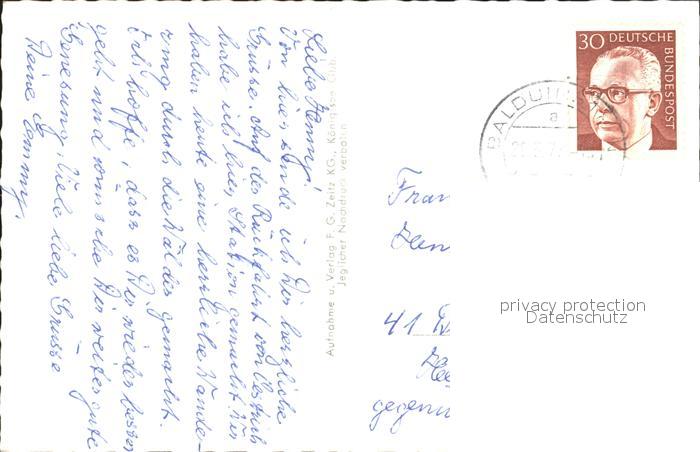 Liebe Henny!
Von hier sende ich Dir herzliche
Grüsse. Auf der Rückfahrt von
habe ich hier Station gemacht. Wir
haben heute eine herrliche Wande-
rung durch die Wälder gemacht.
Ich hoffe, dass es Dir wieder besser
geht und wünsche Dir weiter gute
Genesung. Viele liebe Grüsse
Deine
Aufnahme u. Verlag F. G. Zeitz KG., Königssee Obb.
Jeglicher Nachdruck verboten
30 DEUTSCHE
BUNDESPOST
BALDUIN
a
Frau
Hen
41
gegenü
privacy protection
Datenschutz